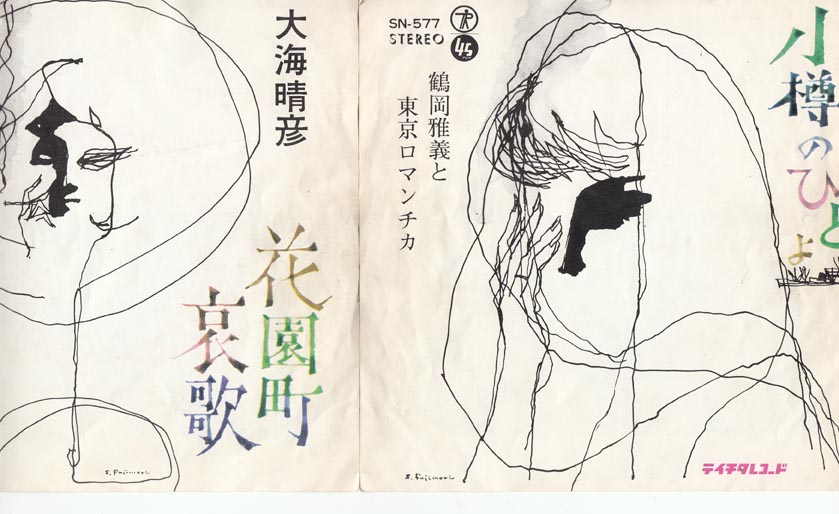 小樽のひとよ
SN-577
STEREO
45
鶴岡雅義と
東京ロマンチカ
テイチクレコード
S. Fujimori
大海晴彦
花園町
哀歌
S. Fujimori